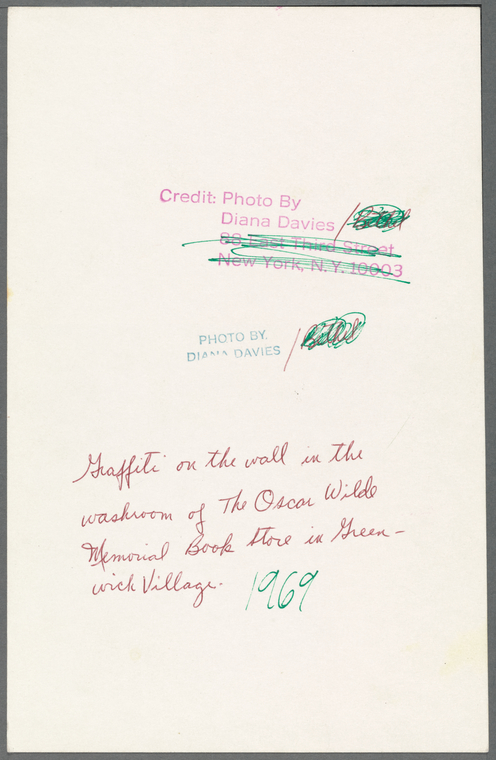 Credit: Photo By
Diana Davies /
88 East Third Street
New York, N.Y. 10003
PHOTO BY
DIANA DAVIES /
Graffiti on the wall in the
washroom of The Oscar Wilde
Memorial Book Store in Green-
wich Village.
1969